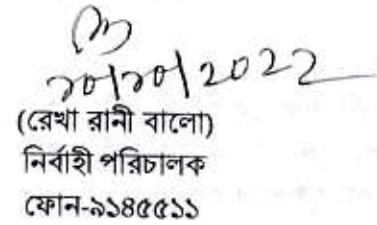 ১০/১০/2022
(রেখা রানী বালো)
নির্বাহী পরিচালক
ফোন-৯১৪৫৫১১